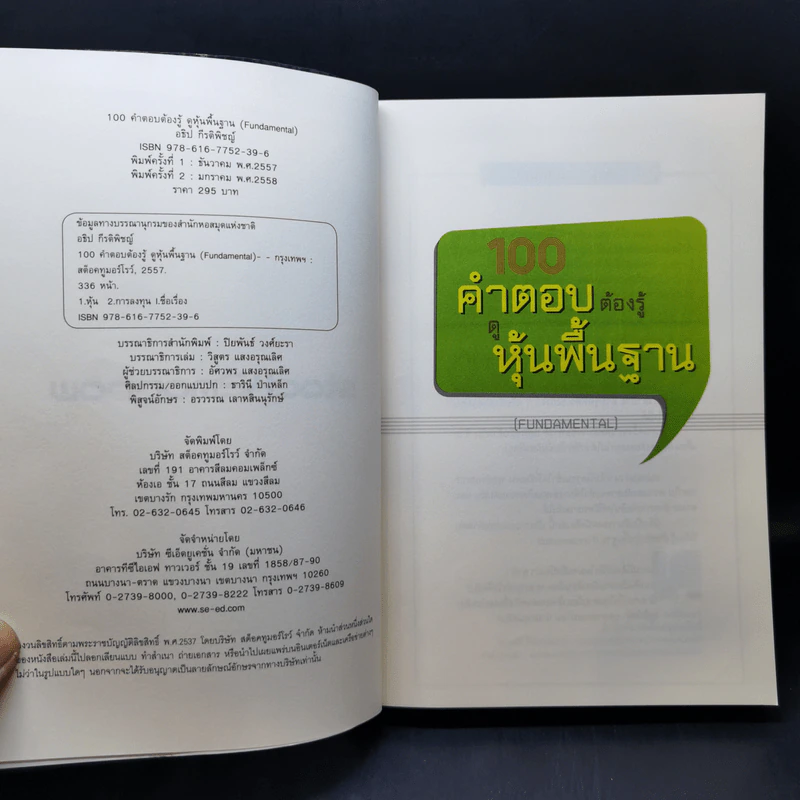 100 คำตอบต้องรู้ ดูหุ้นพื้นฐาน (Fundamental)
อธิป กีรติพิชญ์
ISBN 978-616-7752-39-6
พิมพ์ครั้งที่ 1 : ธันวาคม พ.ศ.2557
พิมพ์ครั้งที่ 2 : มกราคม พ.ศ.2558
ราคา 295 บาท
ข้อมูลทางบรรณานุกรมของสำนักหอสมุดแห่งชาติ
อธิป กีรติพิชญ์
100 คำตอบต้องรู้ ดูหุ้นพื้นฐาน (Fundamental)- - กรุงเทพฯ :
สต็อคทูมอร์โรว์, 2557.
336 หน้า.
1.หุ้น 2.การลงทุน I.ชื่อเรื่อง
ISBN 978-616-7752-39-6
บรรณาธิการสำนักพิมพ์ : ปิยพันธ์ วงศ์ยะรา
บรรณาธิการเล่ม : วิสูตร แสงอรุณเลิศ
ผู้ช่วยบรรณาธิการ : อัศวพร แสงอรุณเลิศ
ศิลปกรรม/ออกแบบปก : ชารินี ป่าเหล็ก
พิสูจน์อักษร : อรวรรณ เลาหสินนุรักษ์
จัดพิมพ์โดย
บริษัท สต็อคทูมอร์โรว์ จำกัด
เลขที่ 191 อาคารสีลมคอมเพล็กซ์
ห้องเอ ชั้น 17 ถนนสีลม แขวงสีลม
เขตบางรัก กรุงเทพมหานคร 10500
โทร. 02-632-0645 โทรสาร 02-632-0646
จัดจำหน่ายโดย
บริษัท ซีเอ็ดยูเคชั่น จำกัด (มหาชน)
อาคารทีซีไอเอฟ ทาวเวอร์ ชั้น 19 เลขที่ 1858/87-90
ถนนบางนา-ตราด แขวงบางนา เขตบางนา กรุงเทพฯ 10260
โทรศัพท์ 0-2739-8000, 0-2739-8222 โทรสาร 0-2739-8609
www.se-ed.com
งวนลิขสิทธิ์ตามพระราชบัญญัติลิขสิทธิ์ พ.ศ.2537 โดยบริษัท สต็อคทูมอร์โรว์ จำกัด ห้ามนำส่วนหนึ่งส่วนใด
องหนังสือเล่มนี้ไปลอกเลียนแบบ ทำสำเนา ถ่ายเอกสาร หรือนำไปเผยแพร่บนอินเตอร์เน็ตและเครือข่ายต่างๆ
ไม่ว่าในรูปแบบใดๆ นอกจากจะได้รับอนุญาตเป็นลายลักษณ์อักษรจากทางบริษัทเท่านั้น
100
คำตอบ ต้องรู้
ดู
หุ้นพื้นฐาน
(FUNDAMENTAL)